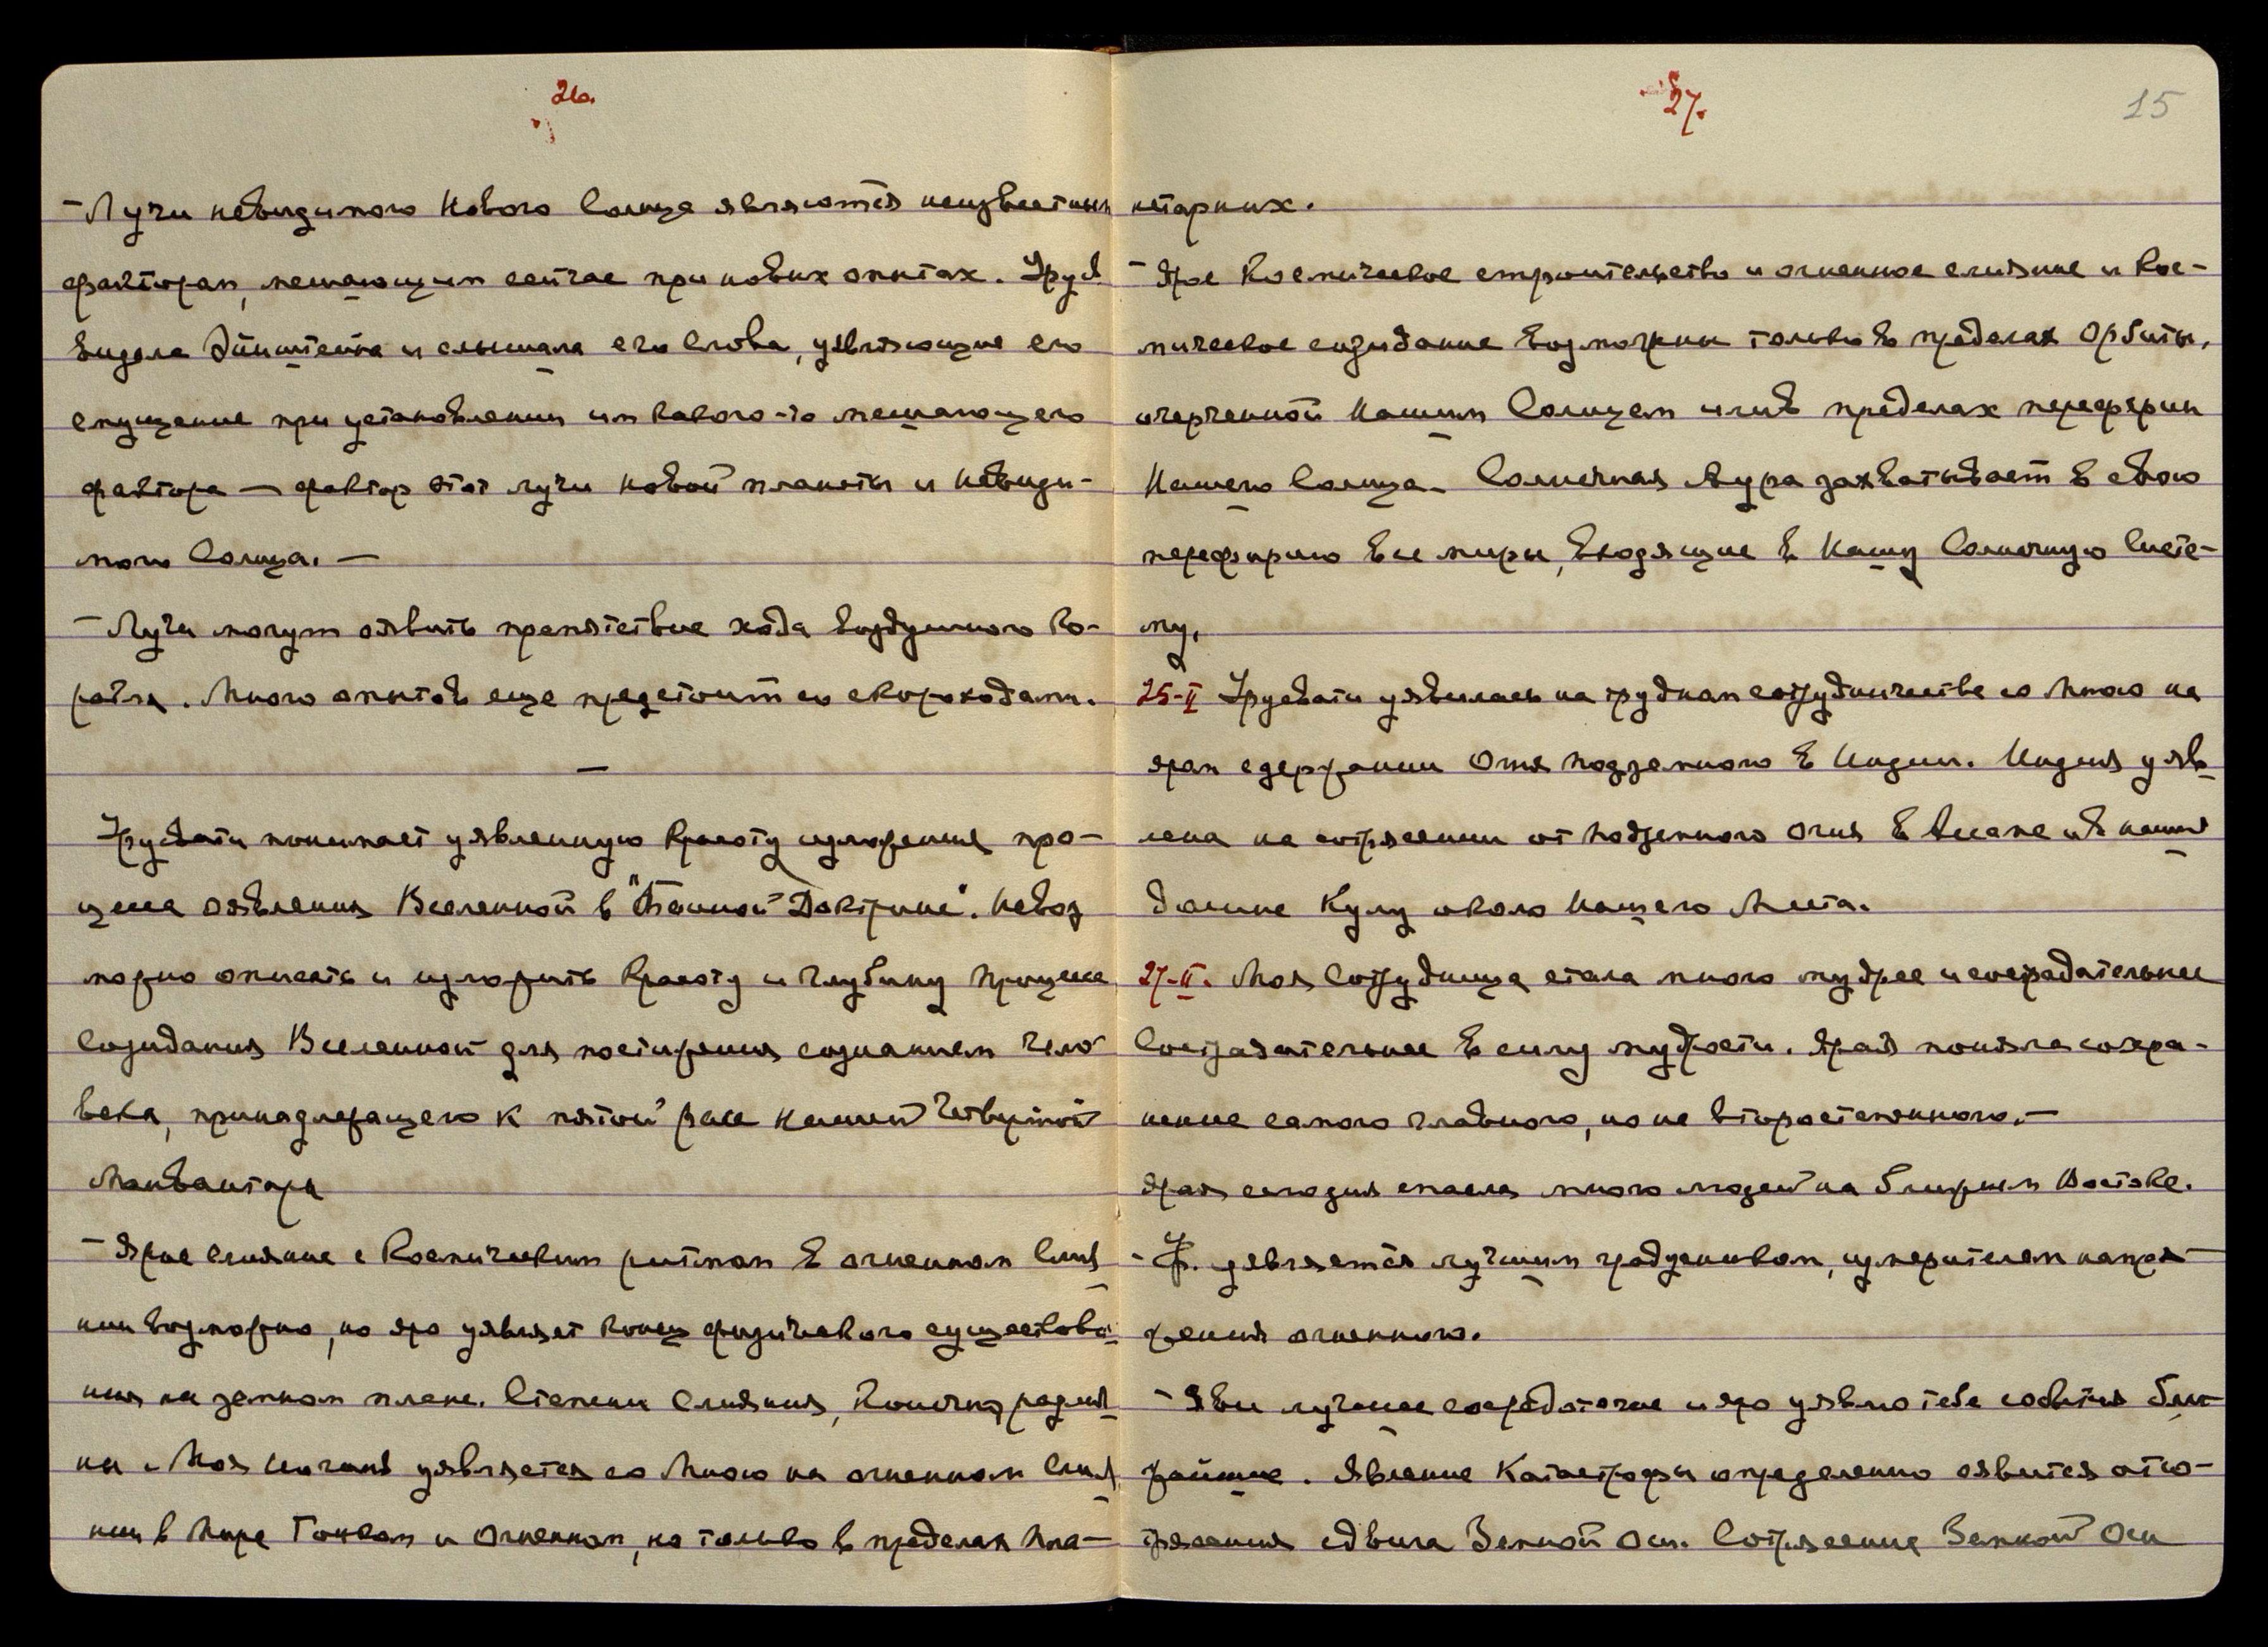 26.
– Лучи невидимого Нового Солнца являются неизвестным
фактором, мешающим сейчас при новых опытах. Урус.
видела Эйнштейна и слышала его слова, уявляющие его
смущение при установлении им какого-то мешающего
фактора — фактор этот лучи новой планеты и невиди-
мого Солнца. —
– Лучи могут оявить препятствие хода воздушного Ко-
рабля. Много опытов еще предстоит со скороходами.
—
Урусвати понимает уявленную Красоту изложения про-
цесса оявления Вселенной в "Тайной Доктрине". Невоз
можно описать и изложить Красоту и глубину Процесса
Созидания Вселенной для постижения сознанием Чело
века, принадлежащего к пятой расе нашей Четвертой
Манвантары
– Ярое слияние с Космическим ритмом в огненном Слия
нии возможно, но яро уявляет конец физического существова
ния на земном плане. Степени Слияния, Конечно, различ
ны. Моя уявляется со Мною на огненном Слия
нии в Мире Тонком и Огненном, но только в пределах Пла-
27.
15
нетарных.
– Ярое Космическое строительство и огненное слияние и Кос-
мическое созидание возможны только в пределах Орбиты,
очерченной Нашим Солнцем или в пределах перефирии
Нашего Солнца. Солнечная Аура захватывает в свою
перефирию все миры, входящие в Нашу Солнечную Систе-
му.
25-II Урусвати уявилась на трудном сотрудничестве со Мною на
яром сдержании Огня подземного в Индии. Индия уяв
лена на сотрясении от подземного огня в Ассаме и в нашей
долине Кулу около Нашего Места.
27-II. Моя Сотрудница стала много мудрее и сострадательнее
Сострадательнее в силу мудрости. Ярая поняла сохра-
нение самого главного, но не второстепенного. —
Ярая сегодня спасла много людей на ближнем Востоке.
– Ур. уявляется лучшим градусником, измерителем напря
жения огненного.
– Яви лучшее сосредоточие и яро уявлю тебе события бли-
жайшие. Явление Катастрофы определенно оявится от со-
трясения сдвига Земной Оси. Сотрясение Земной Оси